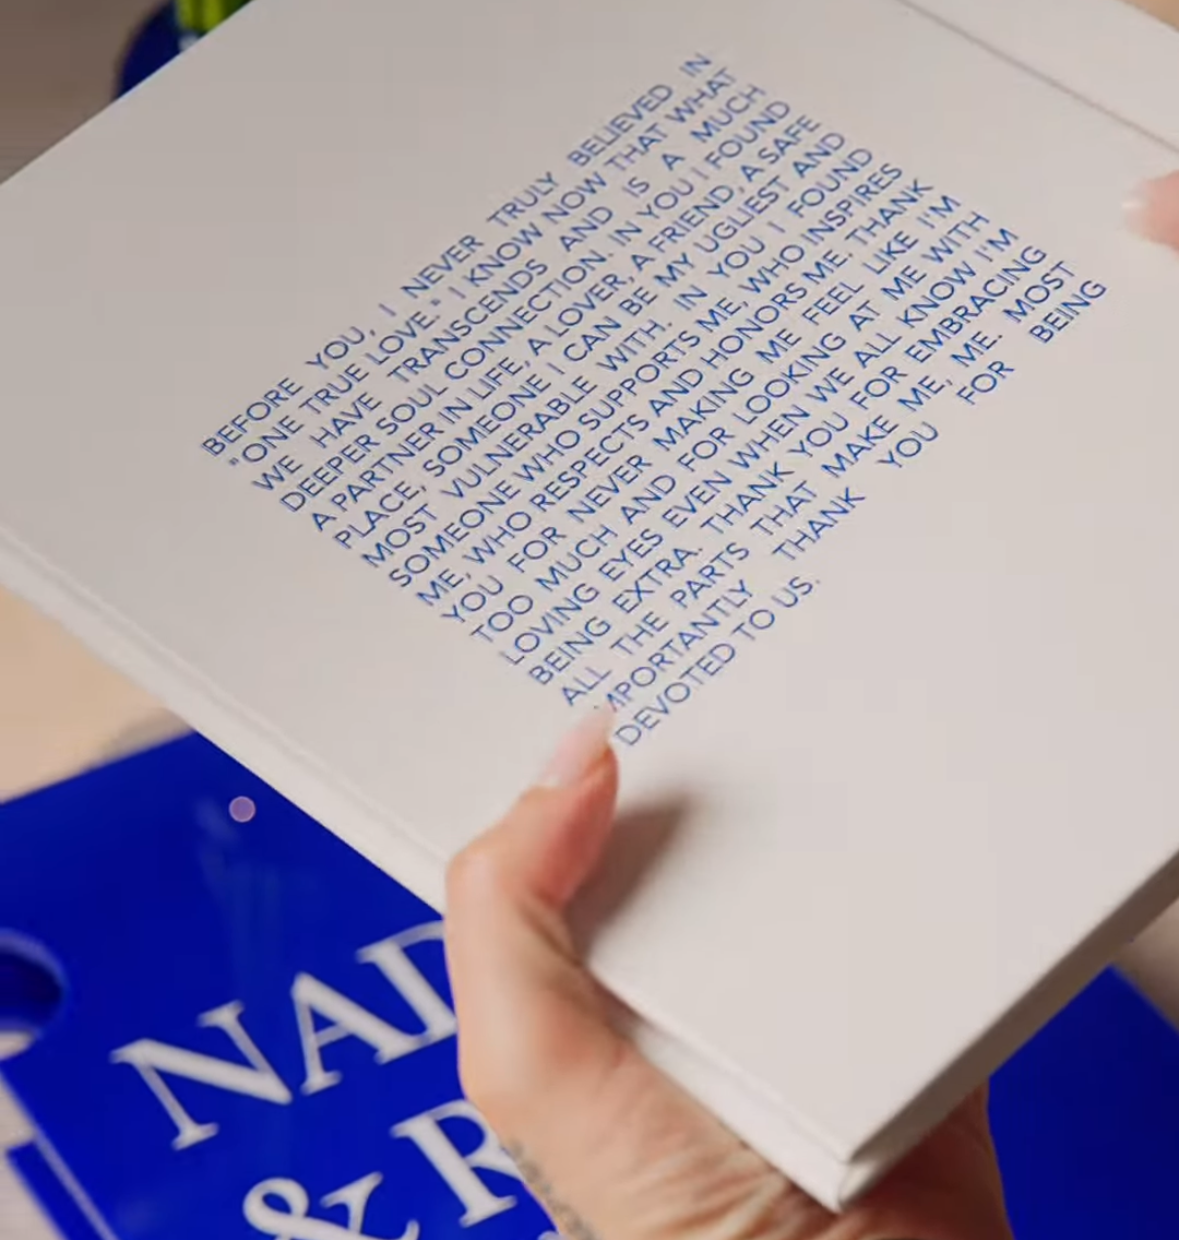 BEFORE YOU, I NEVER TRULY BELIEVED IN
"ONE TRUE LOVE." I KNOW NOW THAT WHAT
WE HAVE TRANSCENDS AND IS A MUCH
DEEPER SOUL CONNECTION. IN YOU I FOUND
A PARTNER IN LIFE, A LOVER, A FRIEND, A SAFE
PLACE, SOMEONE I CAN BE MY UGLIEST AND
MOST VULNERABLE WITH. IN YOU I FOUND
SOMEONE WHO SUPPORTS ME, WHO INSPIRES
ME, WHO RESPECTS AND HONORS ME. THANK
YOU FOR NEVER MAKING ME FEEL LIKE I'M
TOO MUCH AND FOR LOOKING AT ME WITH
LOVING EYES EVEN WHEN WE ALL KNOW I'M
BEING EXTRA. THANK YOU FOR EMBRACING
ALL THE PARTS THAT MAKE ME, ME. MOST
IMPORTANTLY THANK YOU FOR BEING
DEVOTED TO US.
NAD
& R